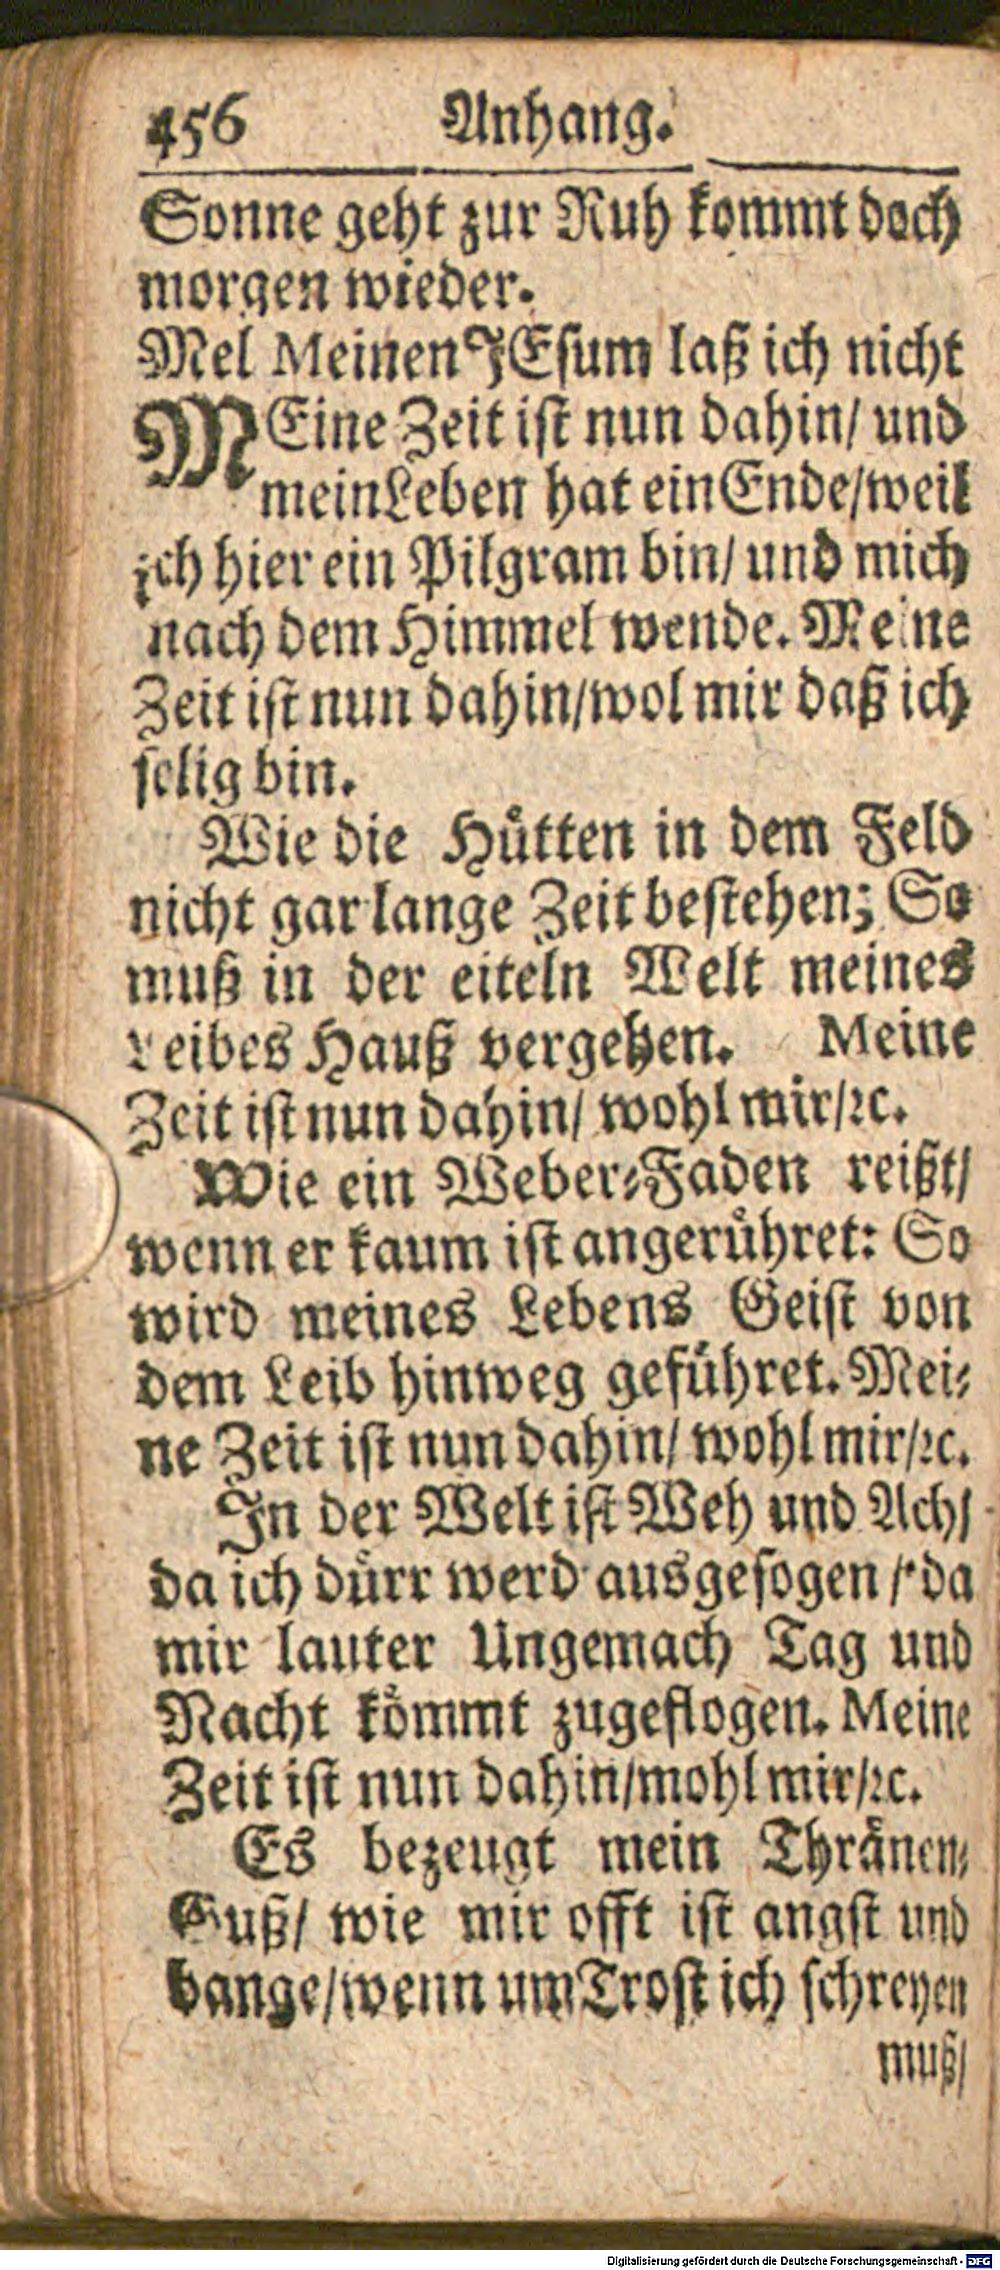 456 Anhang.
Sonne geht zur Ruh kommt doch
morgen wieder.
Mel Meinen JEsum laß ich nicht
MEine Zeit ist nun dahin/ und
mein Leben hat ein Ende/weil
ich hier ein Pilgram bin/ und mich
nach dem Himmel wende. Meine
Zeit ist nun dahin/wol mir daß ich
selig bin.
Wie die Hütten in dem Feld
nicht gar lange Zeit bestehen; So
muß in der eiteln Welt meines
Leibes Hauß vergehen. Meine
Zeit ist nun dahin/ wohl mir/ꝛc.
Wie ein Weber-Faden reißt/
wenn er kaum ist angerühret: So
wird meines Lebens Geist von
dem Leib hinweg geführet. Mei-
ne Zeit ist nun dahin/ wohl mir/ꝛc.
In der Welt ist Weh und Ach/
da ich dürr werd ausgesogen / da
mir lauter Ungemach Tag und
Nacht kömmt zugeflogen. Meine
Zeit ist nun dahin/mohl mir/ꝛc.
Es bezeugt mein Thränen-
Guß/ wie mir offt ist angst und
bange/wenn um Trost ich schreyen
muß/
Digitalisierung gefördert durch die Deutsche Forschungsgemeinschaft - DFG